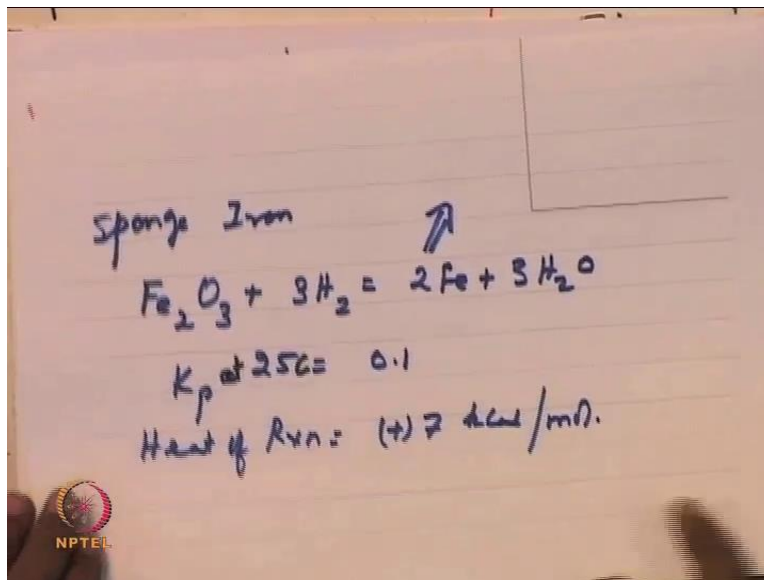 Sponge Iron
Fe2O3 + 3H2 = 2Fe + 3H2O
Kp at 25C = 0.1
Heat of Rxn = (+) 7 kcal/mol.
NPTEL